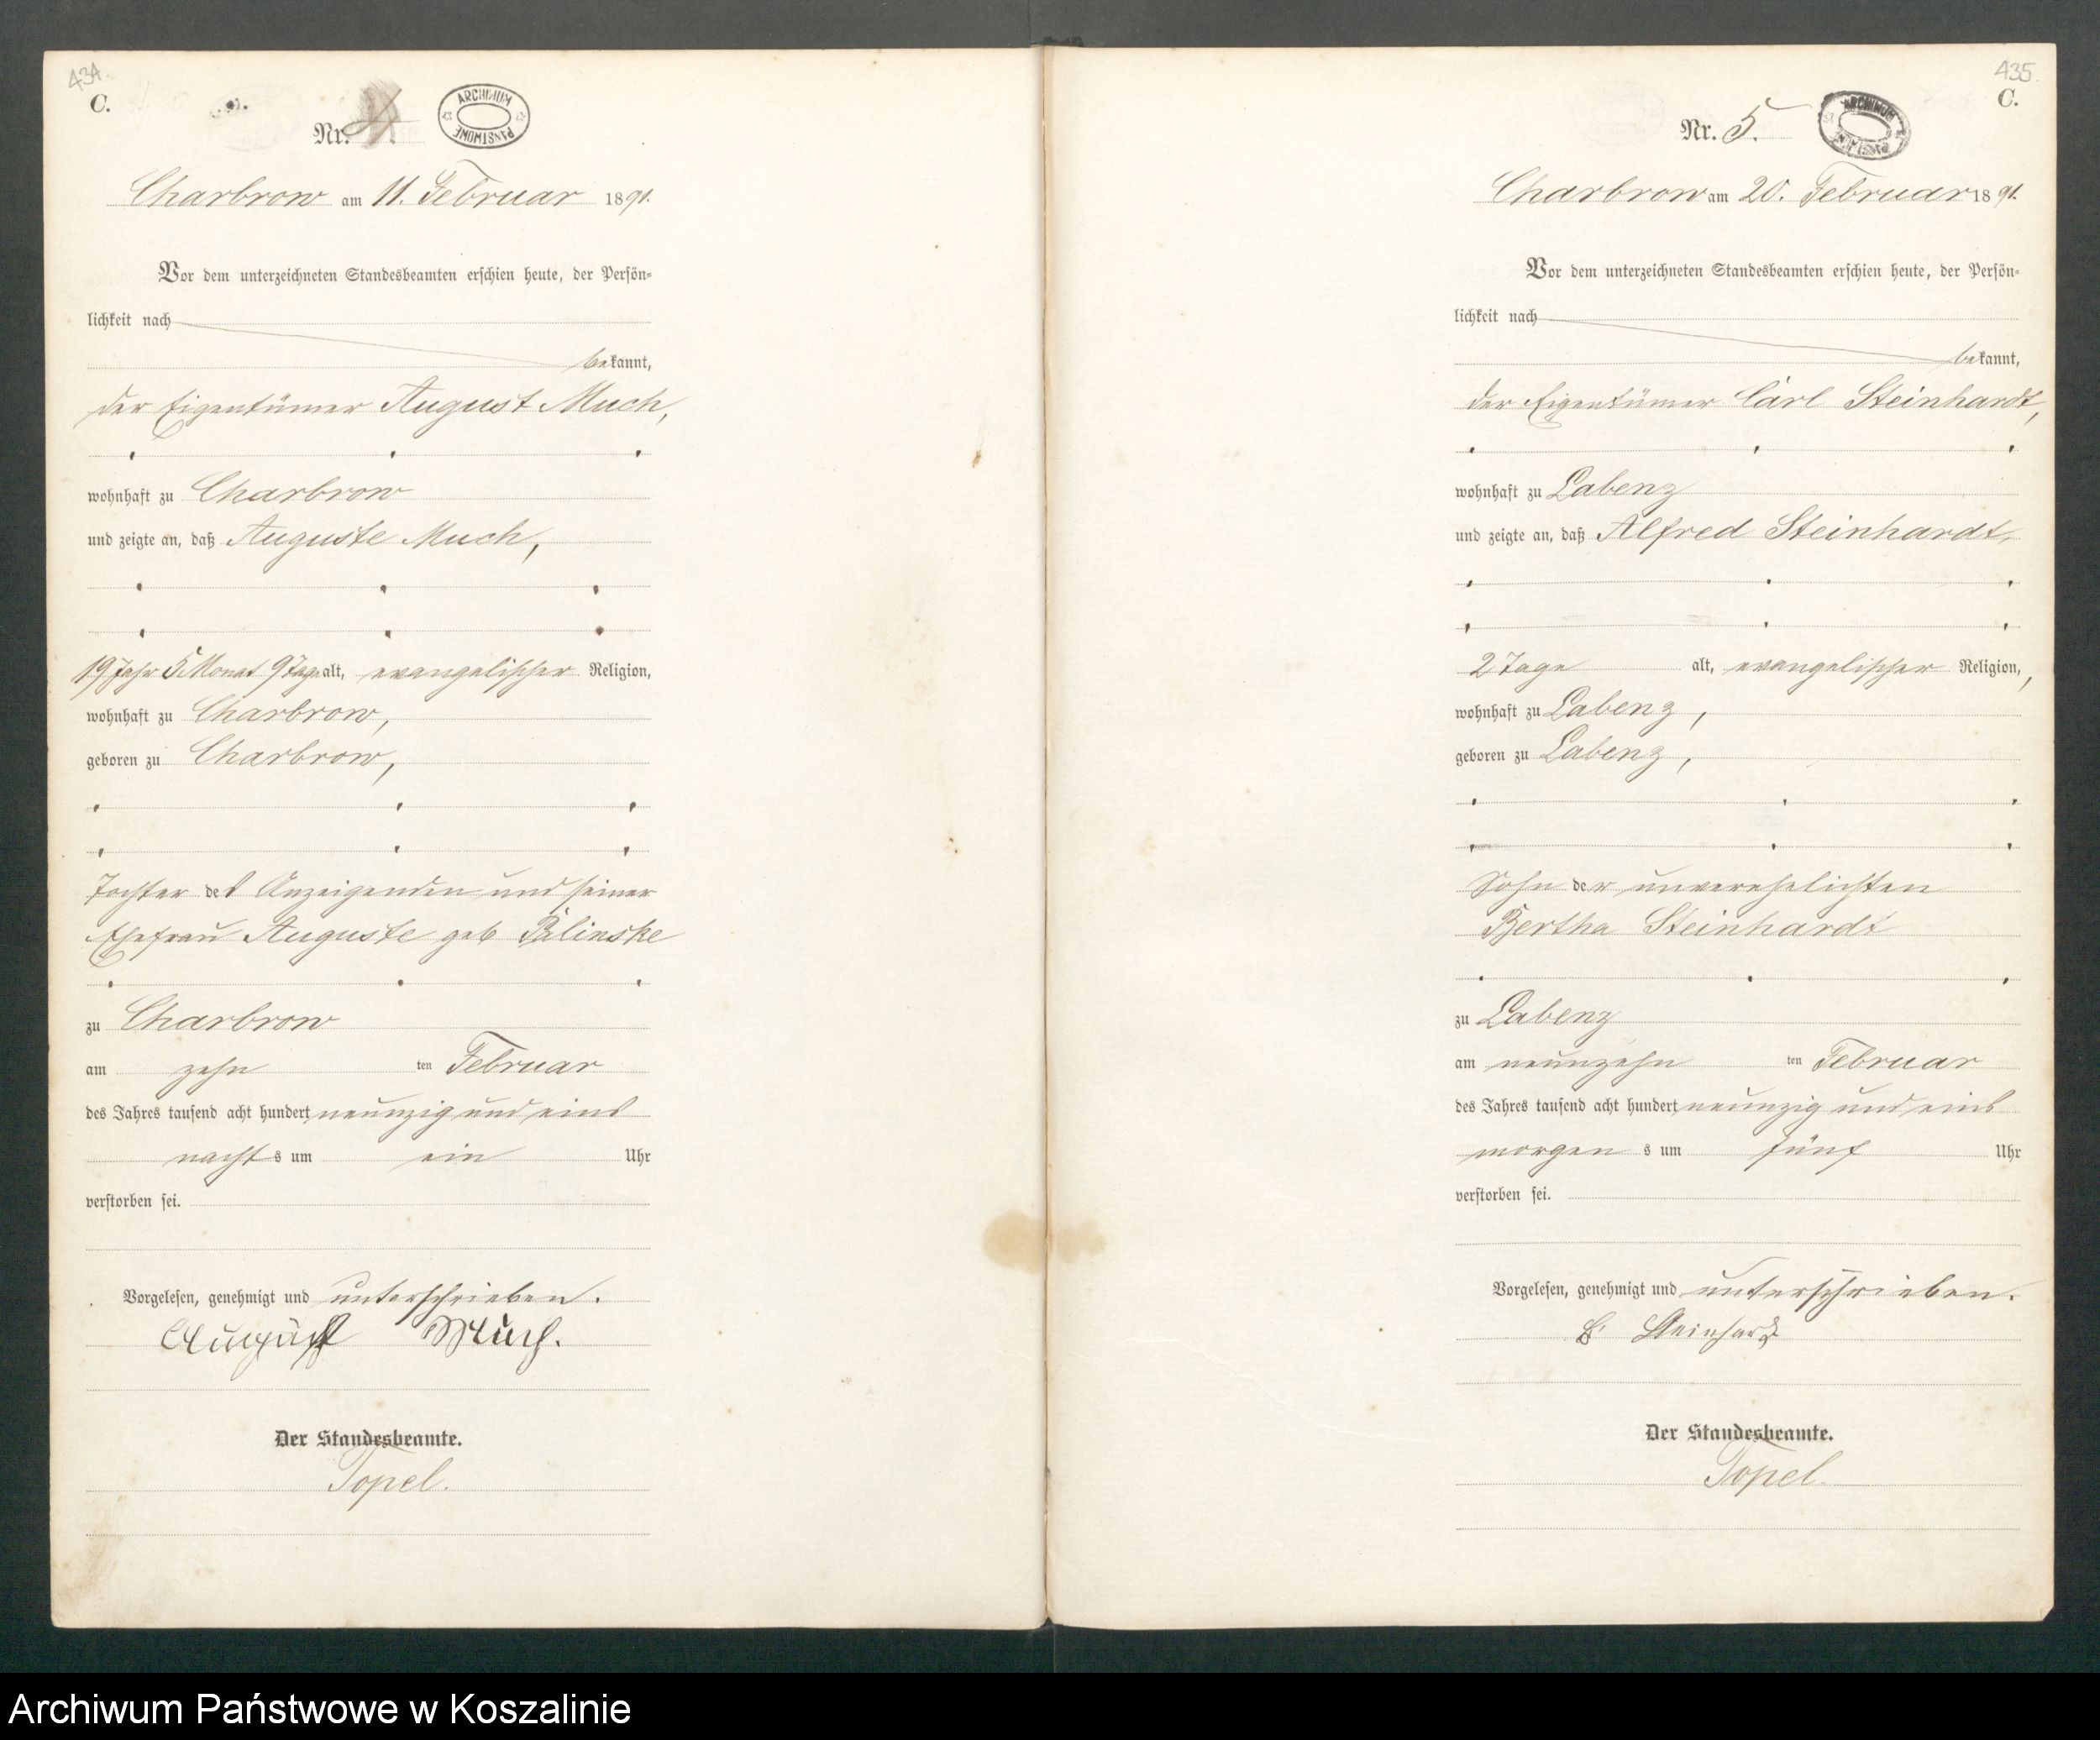 434.
C.
Nr. 4
ARCHIWUM PAŃSTWOWE
Charbrow am 11. Februar 1891.
Vor dem unterzeichneten Standesbeamten erschien heute, der Persön-
lichkeit nach
bekannt,
der Eigentümer August Much,
wohnhaft zu Charbrow
und zeigte an, daß Auguste Much,
19 Jahr 5 Monat 9 Tage alt, evangelischer Religion,
wohnhaft zu Charbrow,
geboren zu Charbrow,
Tochter des Anzeigenden und seiner
Ehefrau Auguste geb
zu Charbrow
am zehn ten Februar
des Jahres tausend acht hundert neunzig und eins
nachts um ein Uhr
verstorben sei.
Vorgelesen, genehmigt und unterschrieben.
August Much.
Der Standesbeamte.
Topel.
435.
C.
Nr. 5.
ARCHIWUM PAŃSTWOWE
Charbrow am 20. Februar 1891.
Vor dem unterzeichneten Standesbeamten erschien heute, der Persön-
lichkeit nach
bekannt,
der Eigentümer Carl Steinhardt,
wohnhaft zu Labenz
und zeigte an, daß Alfred Steinhardt,
2 Tage alt, evangelischer Religion,
wohnhaft zu Labenz,
geboren zu Labenz,
Sohn der unverehelichten
Bertha Steinhardt
zu Labenz
am neunzehn ten Februar
des Jahres tausend acht hundert neunzig und eins
morgens um fünf Uhr
verstorben sei.
Vorgelesen, genehmigt und unterschrieben.
Steinhardt
Der Standesbeamte.
Topel.
Archiwum Państwowe w Koszalinie